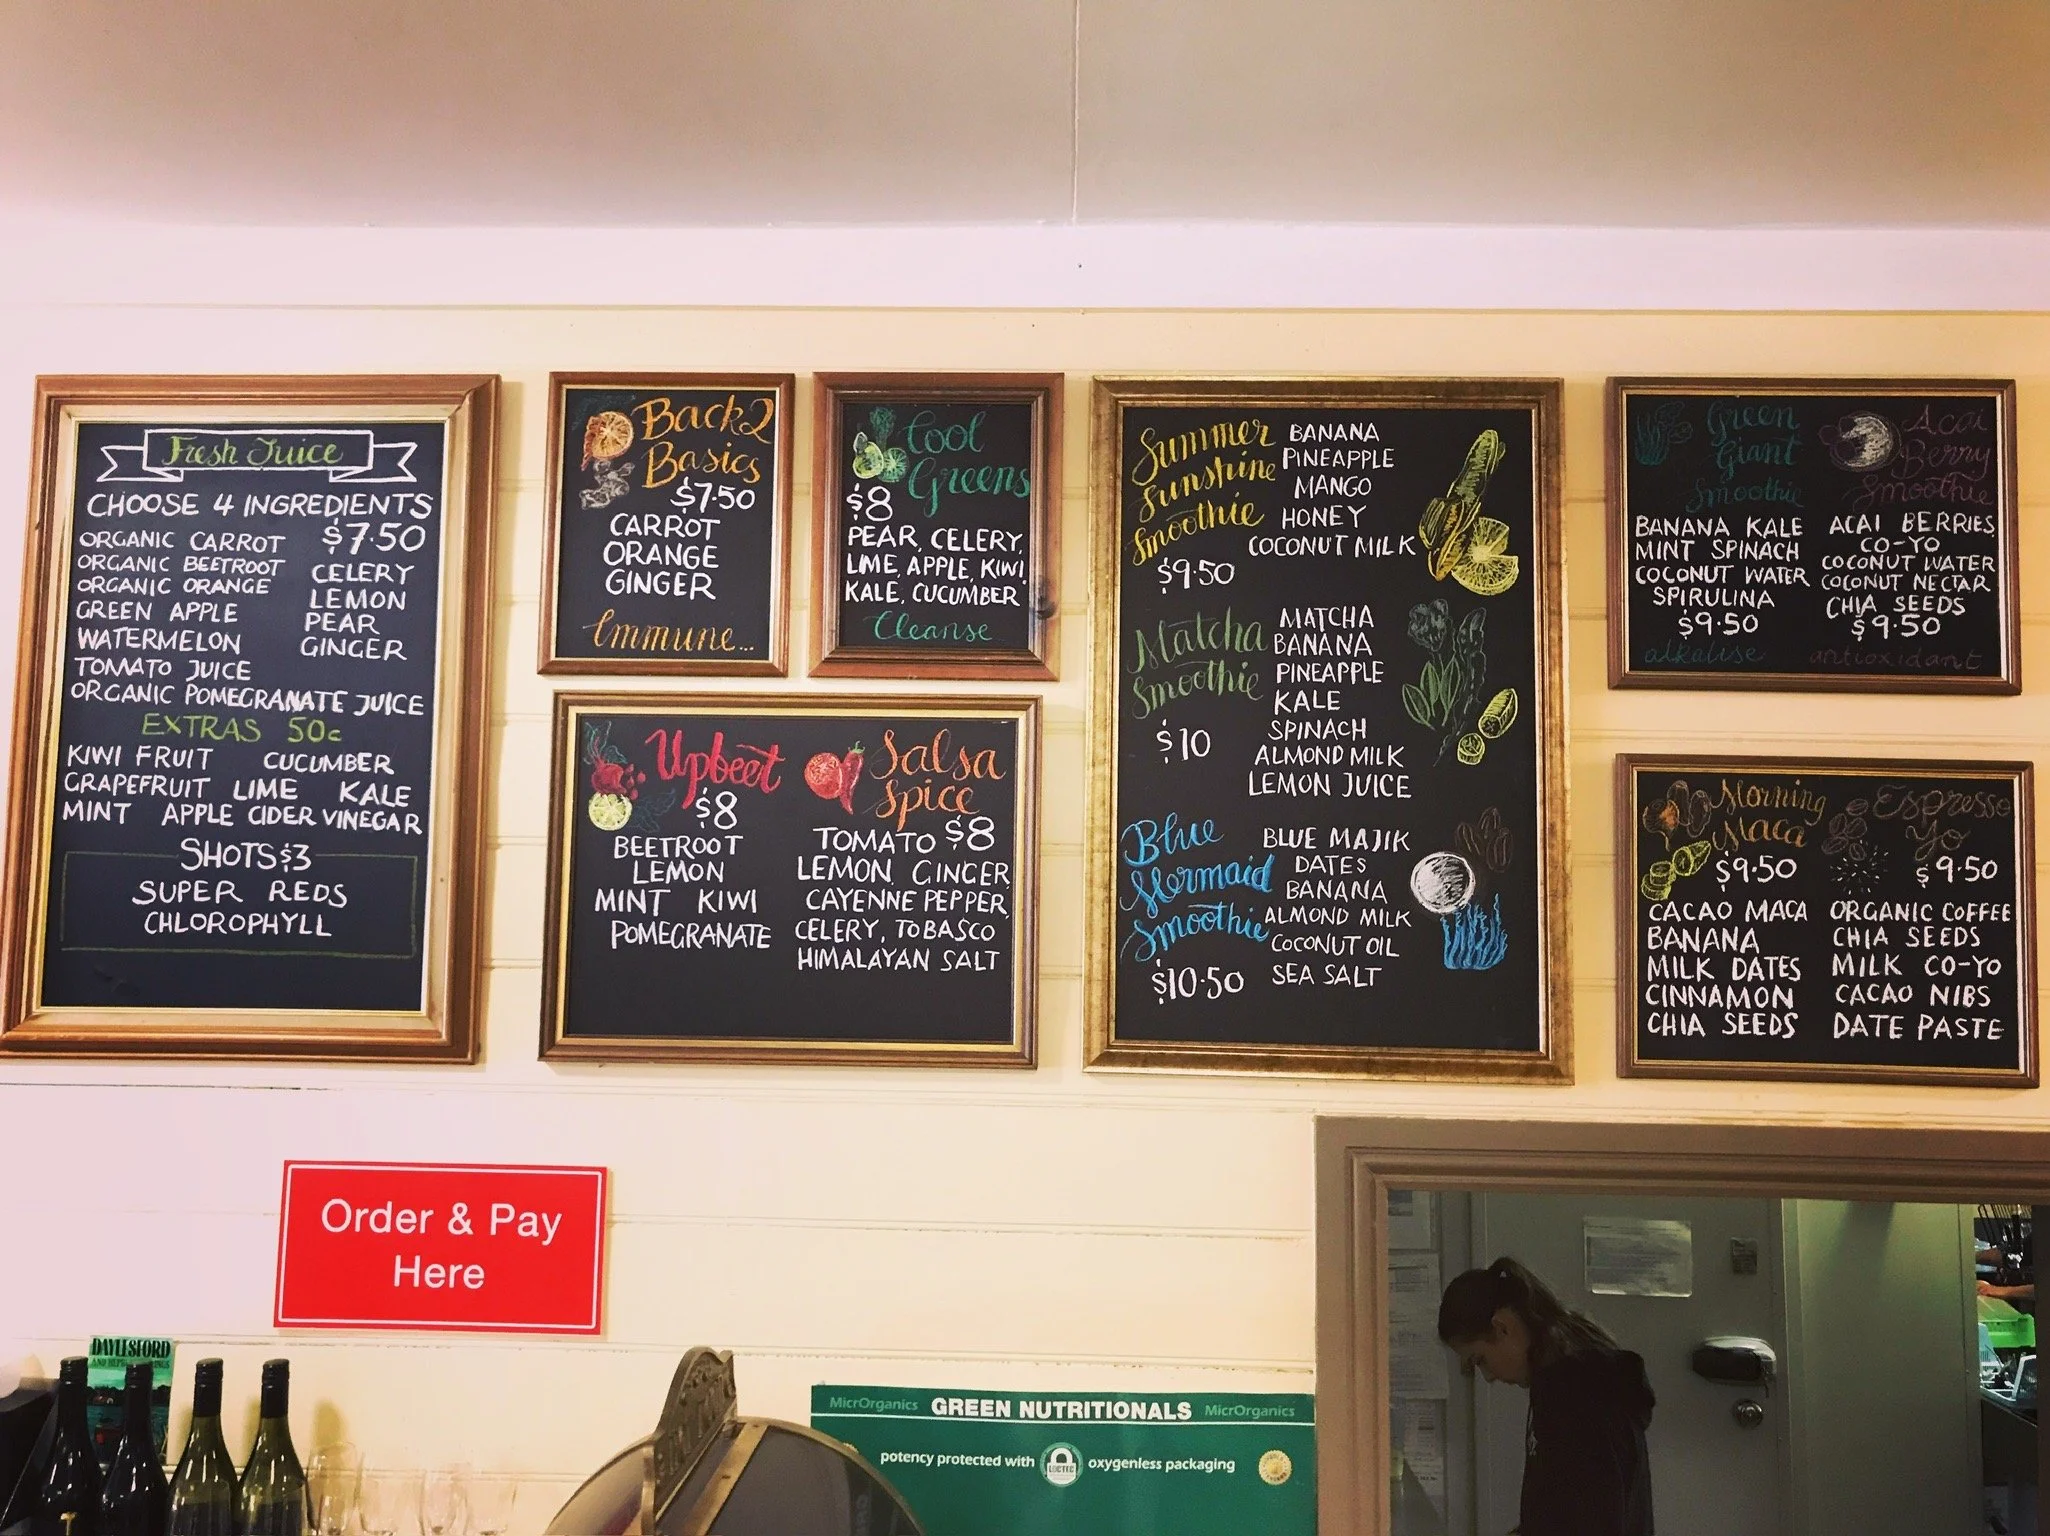 Fresh Juice
CHOOSE 4 INGREDIENTS
$7.50
ORGANIC CARROT
ORGANIC BEETROOT
ORGANIC ORANGE
GREEN APPLE
WATERMELON
TOMATO JUICE
ORGANIC POMEGRANATE JUICE
CELERY
LEMON
PEAR
GINGER
EXTRAS 50c
KIWI FRUIT CUCUMBER
GRAPEFRUIT LIME KALE
MINT APPLE CIDER VINEGAR
SHOTS $3
SUPER REDS
CHLOROPHYLL
Back 2
Basics
$7.50
CARROT
ORANGE
GINGER
Immune...
Cool
Greens
$8
PEAR, CELERY,
LIME, APPLE, KIWI,
KALE, CUCUMBER
Cleanse
Upbeet
$8
BEETROOT
LEMON
MINT KIWI
POMEGRANATE
Salsa
Spice
TOMATO $8
LEMON, GINGER,
CAYENNE PEPPER,
CELERY, TOBASCO
HIMALAYAN SALT
Summer
Sunshine
Smoothie
$9.50
BANANA
PINEAPPLE
MANGO
HONEY
COCONUT MILK
Matcha
Smoothie
$10
MATCHA
BANANA
PINEAPPLE
KALE
SPINACH
ALMOND MILK
LEMON JUICE
Blue
Mermaid
Smoothie
$10.50
BLUE MAJIK
DATES
BANANA
ALMOND MILK
COCONUT OIL
SEA SALT
Green
Giant
Smoothie
BANANA KALE
MINT SPINACH
COCONUT WATER
SPIRULINA
$9.50
alkalise
Acai
Berry
Smoothie
ACAI BERRIES
CO-YO
COCONUT WATER
COCONUT NECTAR
CHIA SEEDS
$9.50
antioxidant
Morning
Maca
$9.50
CACAO MACA
BANANA
MILK DATES
CINNAMON
CHIA SEEDS
Espresso
Yo
$9.50
ORGANIC COFFEE
CHIA SEEDS
MILK CO-YO
CACAO NIBS
DATE PASTE
Order & Pay
Here
DAYLESFORD
MicrOrganics GREEN NUTRITIONALS MicrOrganics
potency protected with oxygenless packaging